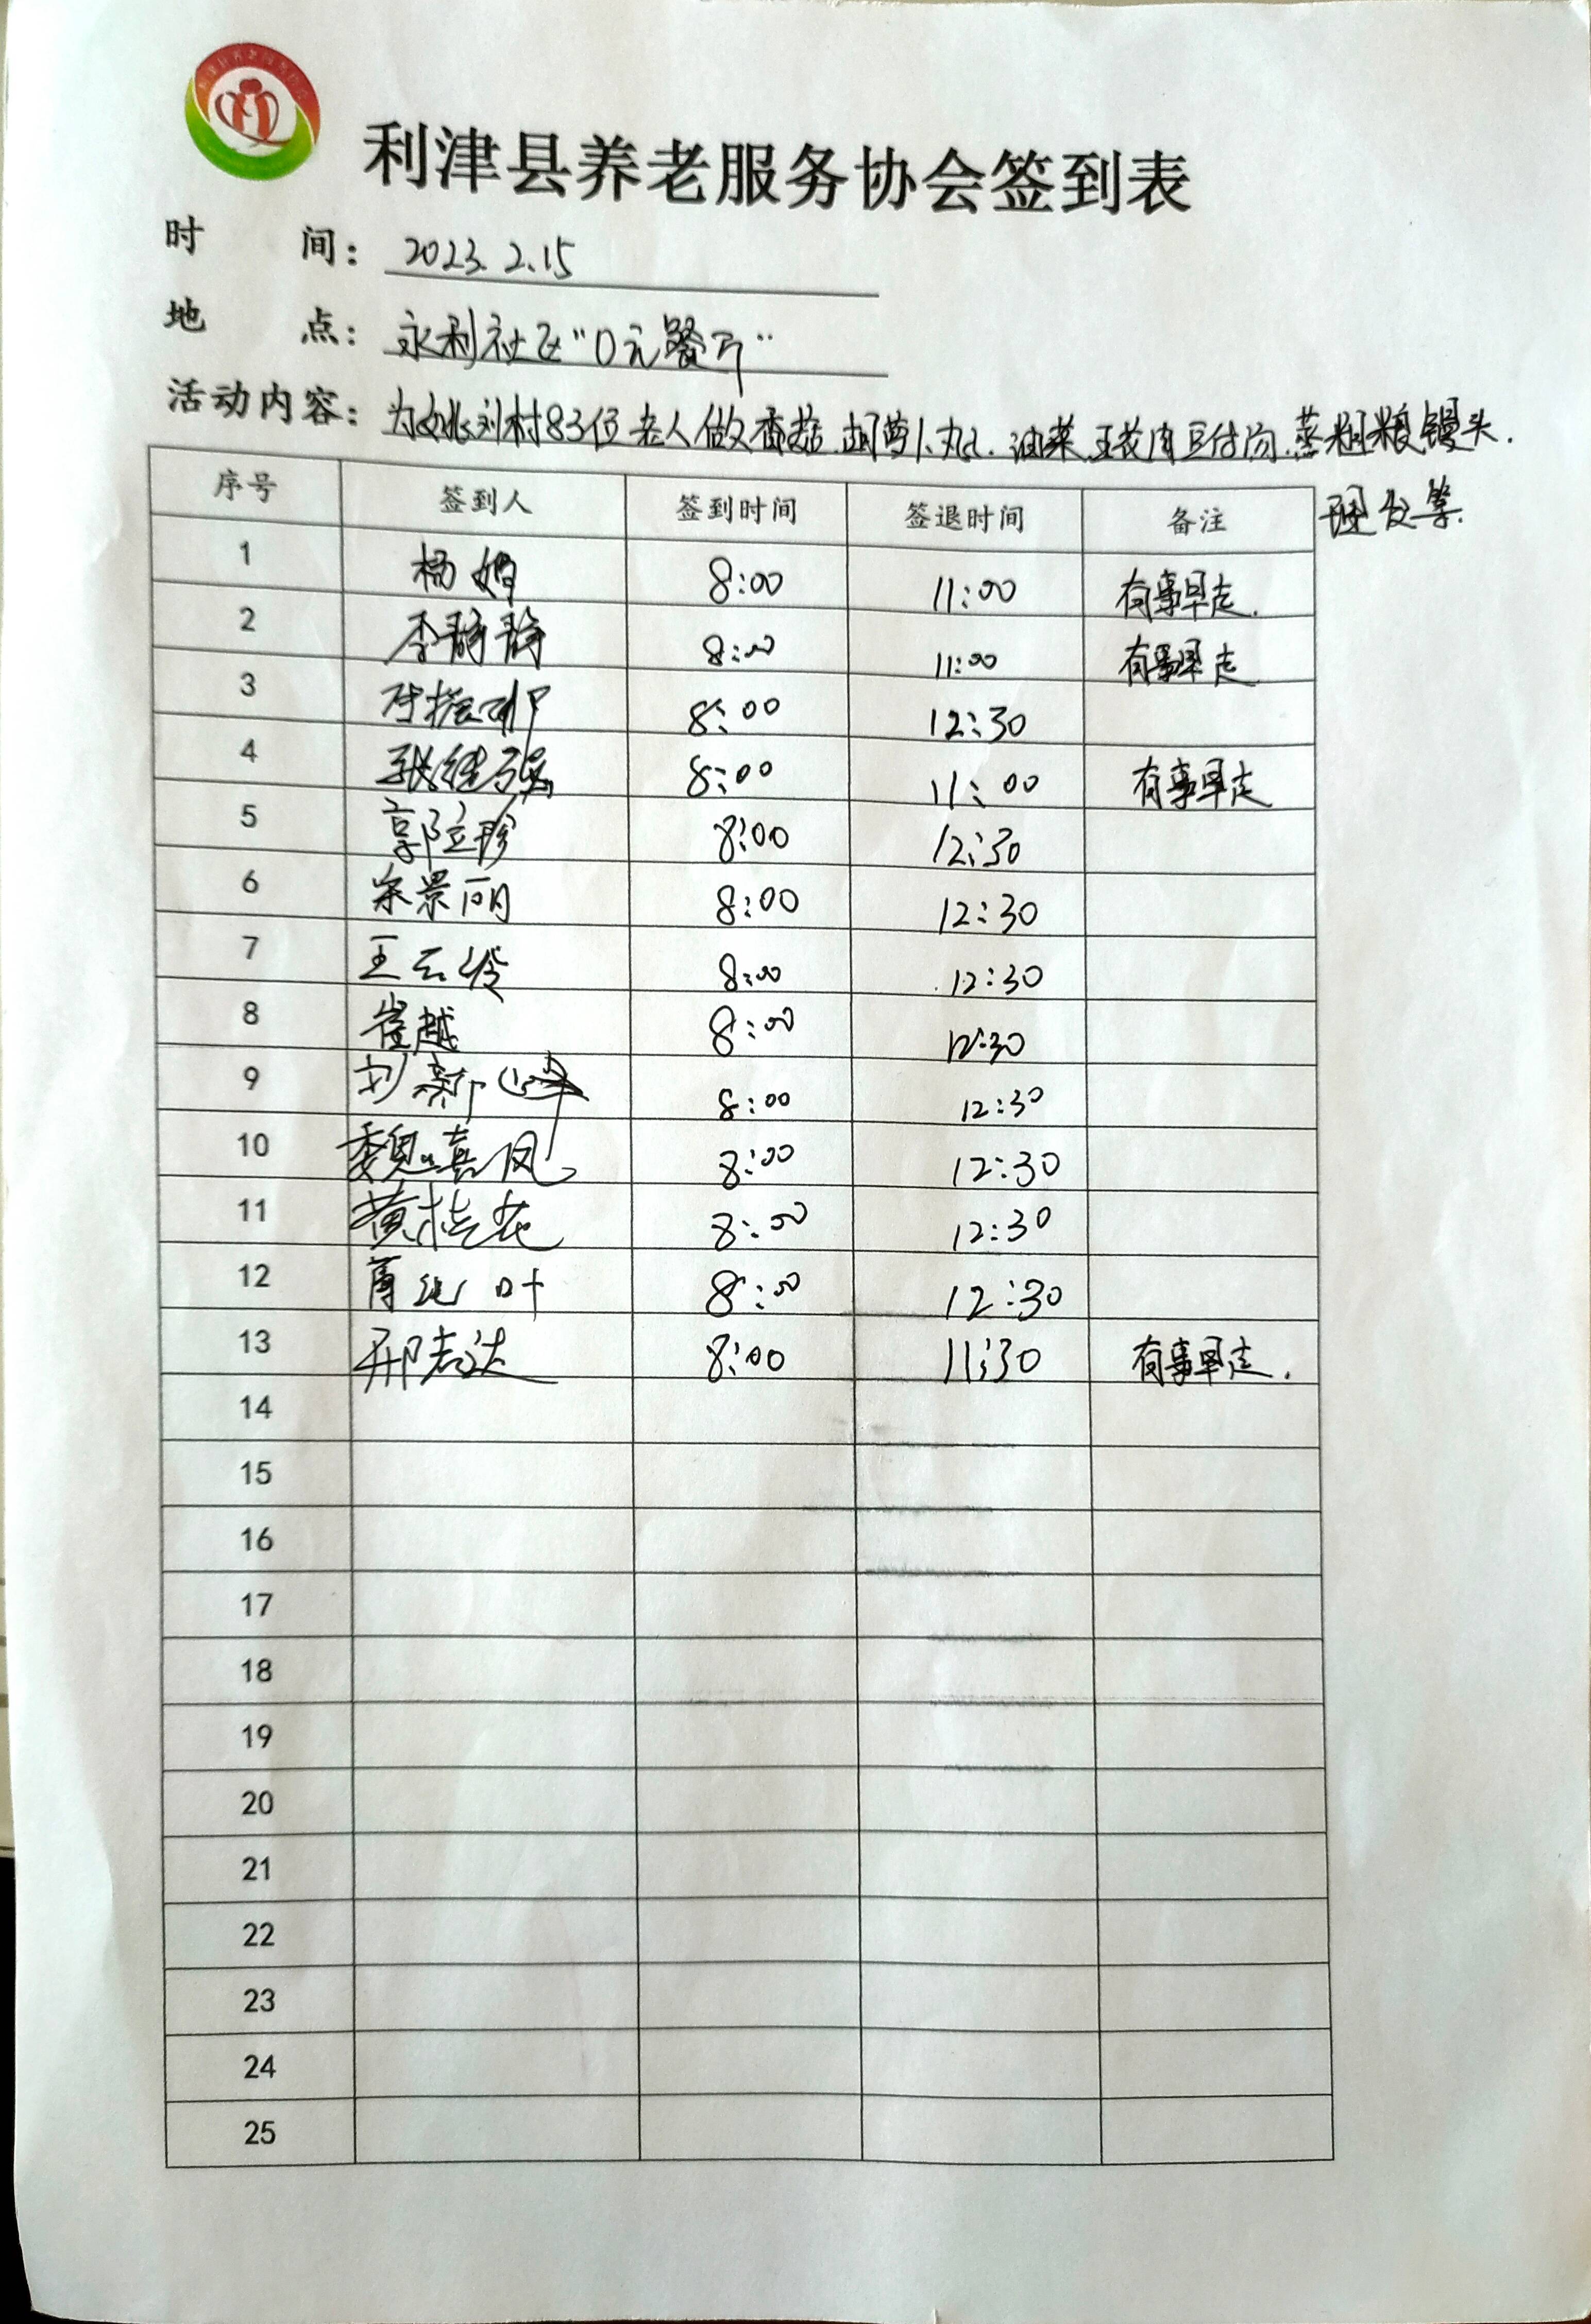 利津县养老服务协会签到表
时 间: 2023.2.15
地 点: 永利社区"0元餐厅"
活动内容: 为姚刘村83位老人做香菇.胡萝卜丸子.油菜.五花肉豆付汤.蒸粗粮馒头.
理发等.
序号 签到人 签到时间 签退时间 备注
1 杨娟 8:00 11:00 有事早走.
2 李静静 8:00 11:00 有事早走
3 8:00 12:30
4 张继强 8:00 11:00 有事早走
5 郭立珍 8:00 12:30
6 宋景丽 8:00 12:30
7 王云伶 8:00 12:30
8 崔越 8:00 12:30
9 刘新峰 8:00 12:30
10 魏喜凤 8:00 12:30
11 黄桂花 8:00 12:30
12 叶 8:00 12:30
13 邢志达 8:00 11:30 有事早走.
14
15
16
17
18
19
20
21
22
23
24
25